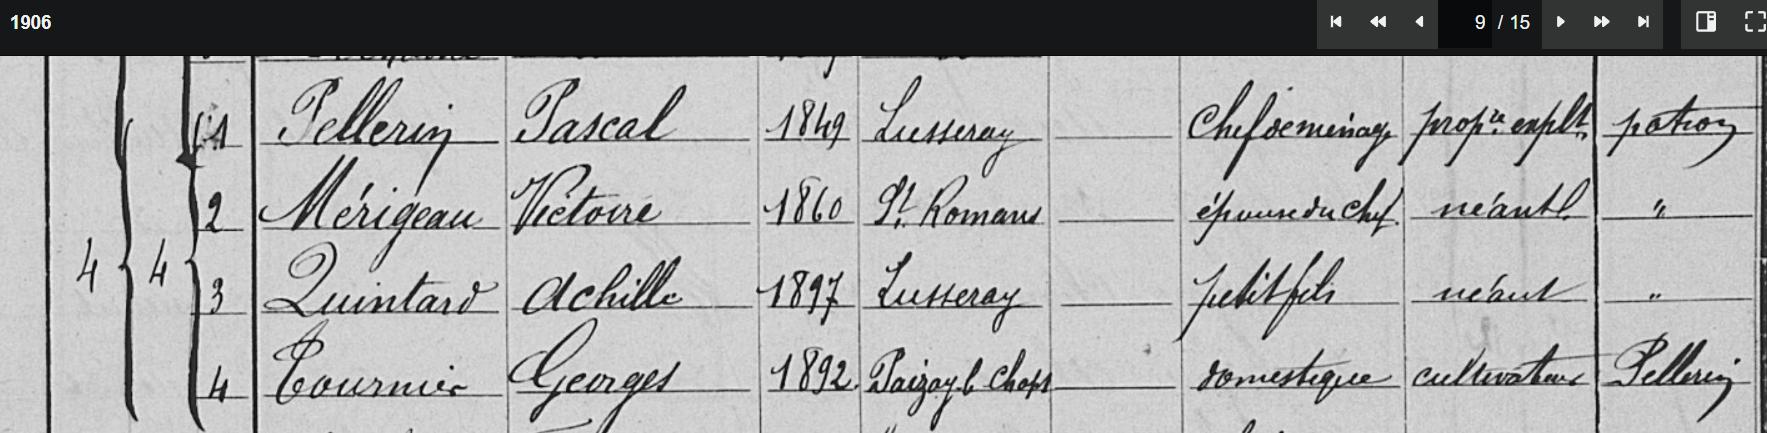 1906 9 / 15
1 Pellerin Pascal 1849 Lusseray chef de ménage prop.re explt. patron
2 Mérigeau Victoire 1860 St. Romans épouse du chef néant "
4 4 3 Quintard Achille 1897 Lusseray petit fils néant "
4 Tournier Georges 1892. Paizay le Chapt domestique cultivateur Pellerin